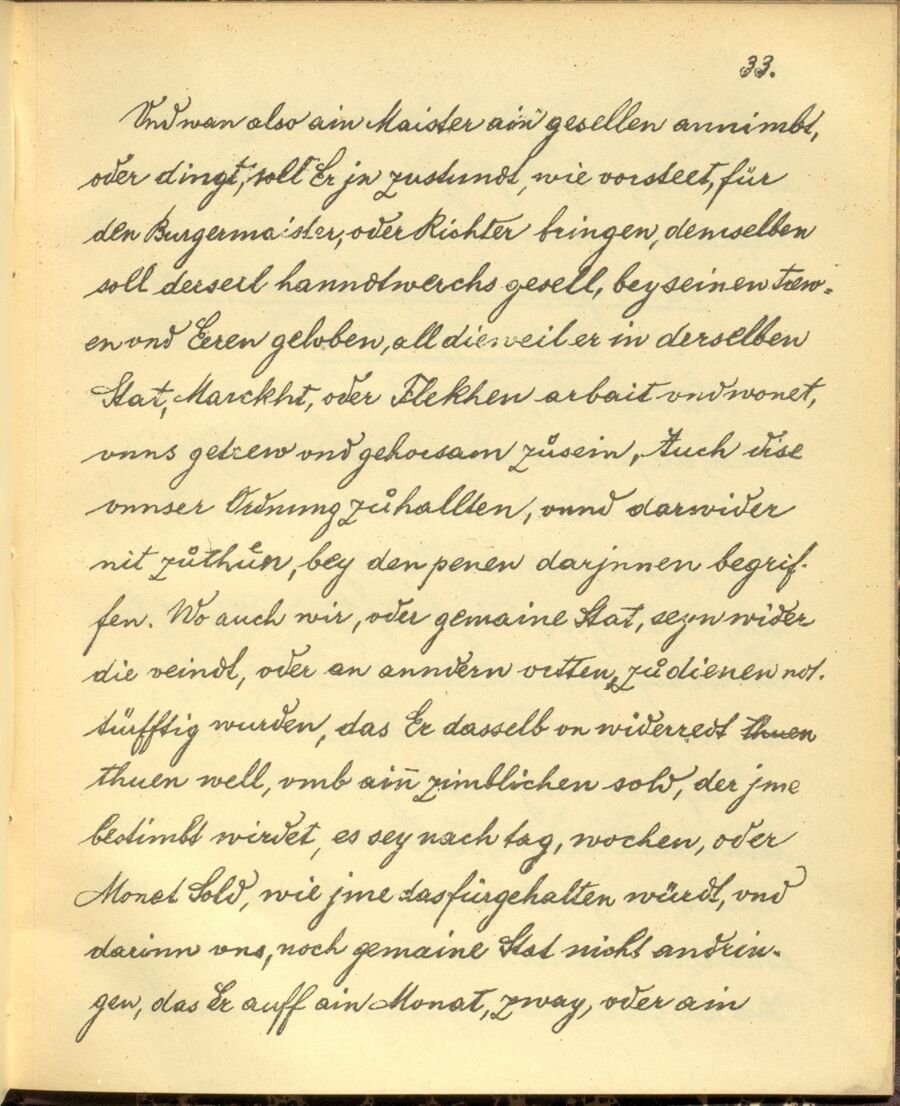 33.
Vnd wan also ain Maister ain̄ gesellen annimbt,
oder dingt, soll Er jn zustundt, wie vorsteet, für
den Burgermaister, oder Richter bringen, demselben
soll derseil hanndtwerchs gesell, bey seinen trew=
en vnd Eeren geloben, all dieweil er in derselben
Stat, Marckht, oder Flekhen arbait vnd wonet,
vnns getrew vnd gehorsam zůsein, Auch dise
vnnser Ordnung zůhallten, vnnd darwider
nit zůthůen, bey den penen darjnnen begrif-
fen. Wo auch wir, oder gemaine Stat, seyn wider
die veindt, oder an anndern ortten, zůdienen not.
türfftig wurden, das Er dasselb on widerredt thuen
thuen well, vmb ain̄ zimblichen sold, der jme
bestimbt wirdet, es sey nach tag, wochen, oder
Monat Sold, wie jme das fürgehalten würdt, vnd
darinn vns, noch gemaine Stat nicht andrin-
gen, das Er auff ain Monat, zway, oder ain